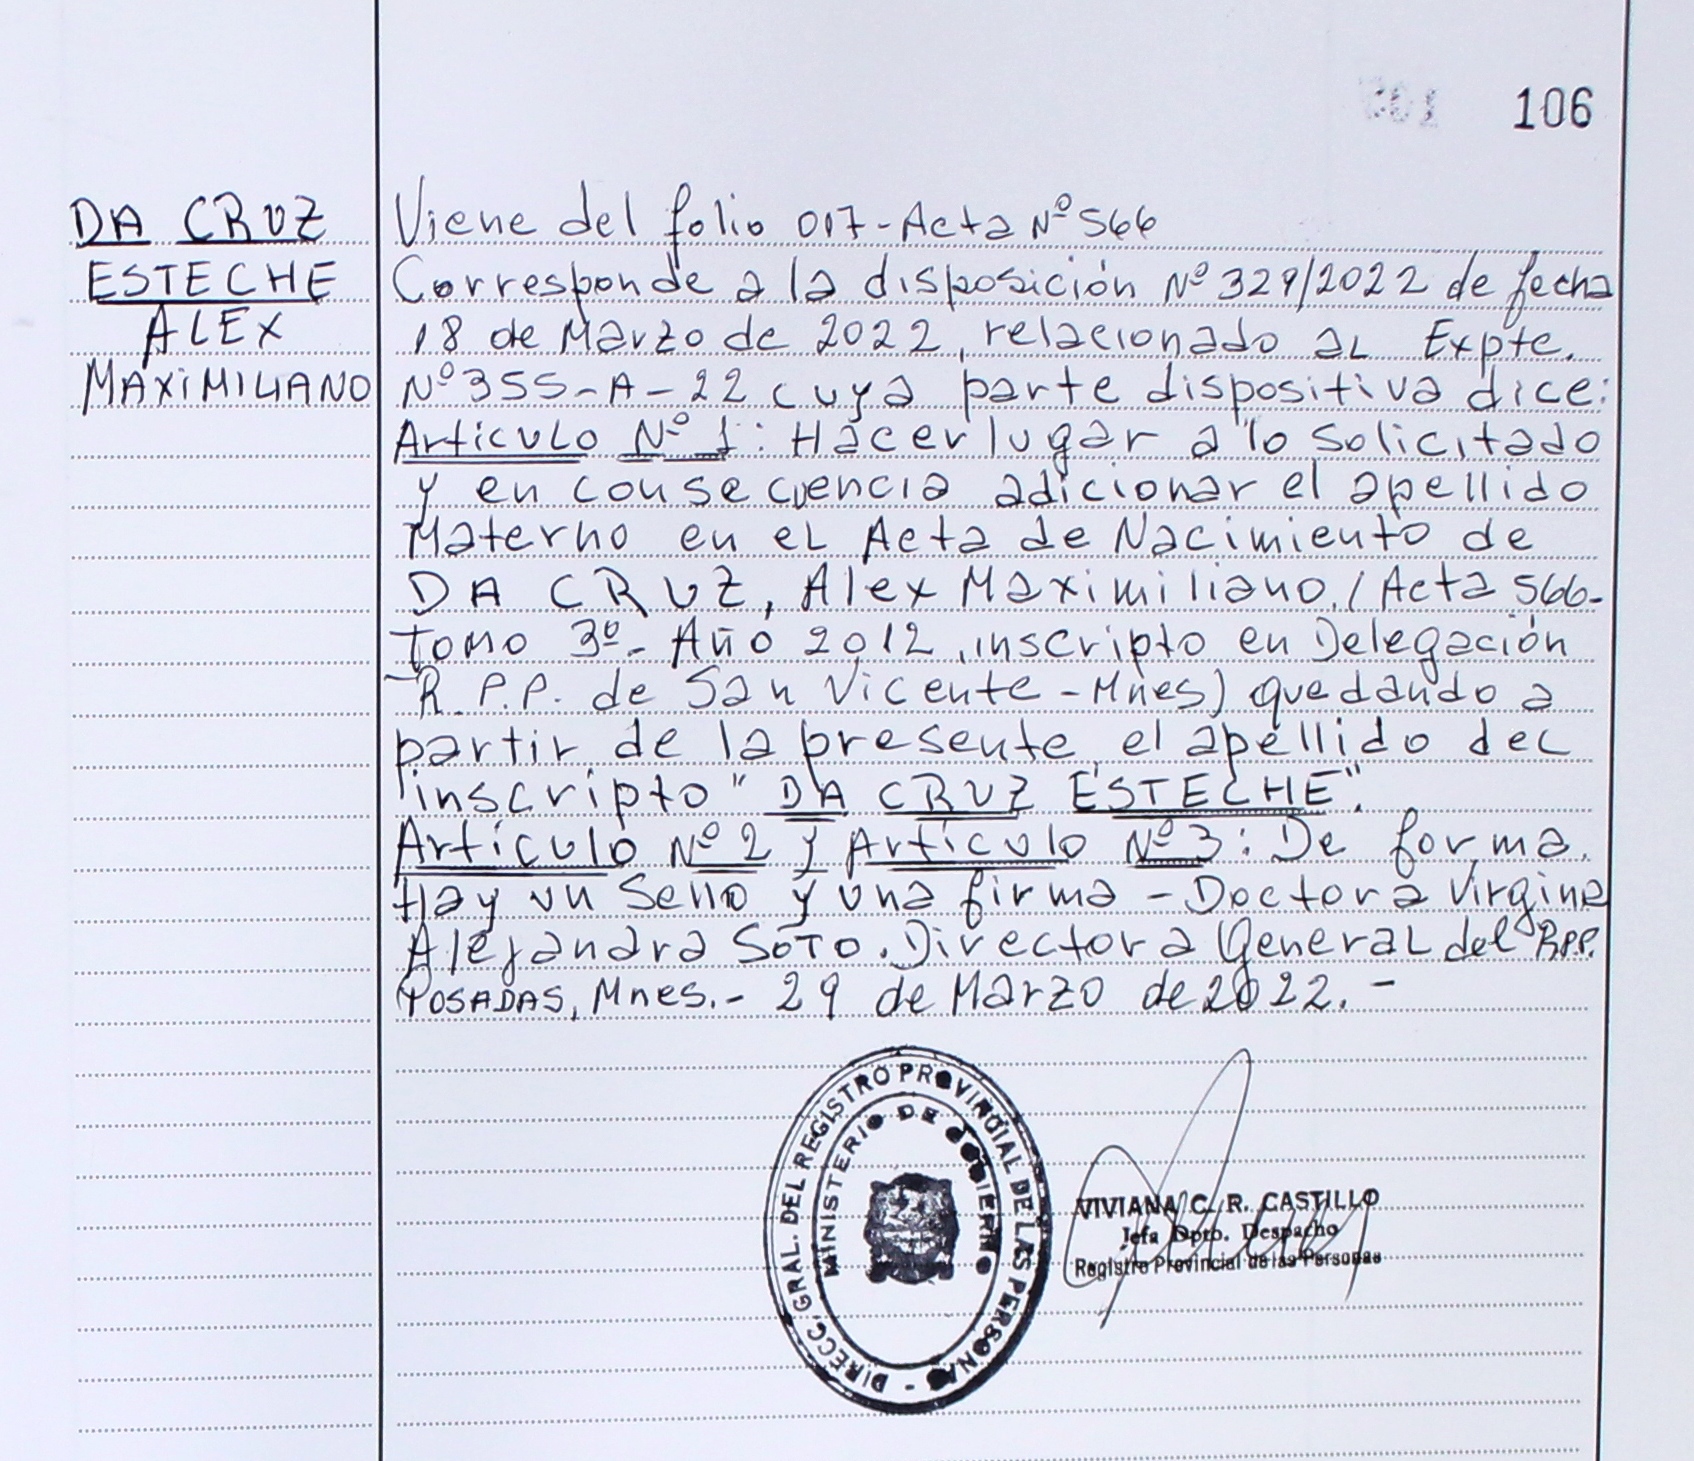 106
DA CRUZ
ESTECHE
ALEX
MAXIMILIANO
Viene del folio 017-Acta Nº 566
Corresponde a la disposición Nº 329/2022 de fecha
18 de Marzo de 2022, relacionado al Expte.
Nº 355-A-22 cuya parte dispositiva dice:
Artículo Nº 1: Hacer lugar a lo solicitado
y en consecuencia adicionar el apellido
Materno en el Acta de Nacimiento de
DA CRUZ, Alex Maximiliano. (Acta 566-
Tomo 3º- Año 2012, inscripto en Delegación
R.P.P. de San Vicente - Mnes) quedando a
partir de la presente, el apellido del
inscripto "DA CRUZ ESTECHE".
Artículo Nº 2 y Artículo Nº 3: De forma.
Hay un Sello y una firma - Doctora Virgina
Alejandra SOTO. Directora General del R.P.P.
POSADAS, Mnes.- 29 de Marzo de 2022.-
DIRECC. GRAL. DEL REGISTRO PROVINCIAL DE LAS PERSONAS -
MINISTERIO DE GOBIERNO
VIVIANA C. R. CASTILLO
Jefa Dpto. Despacho
Registro Provincial de las Personas